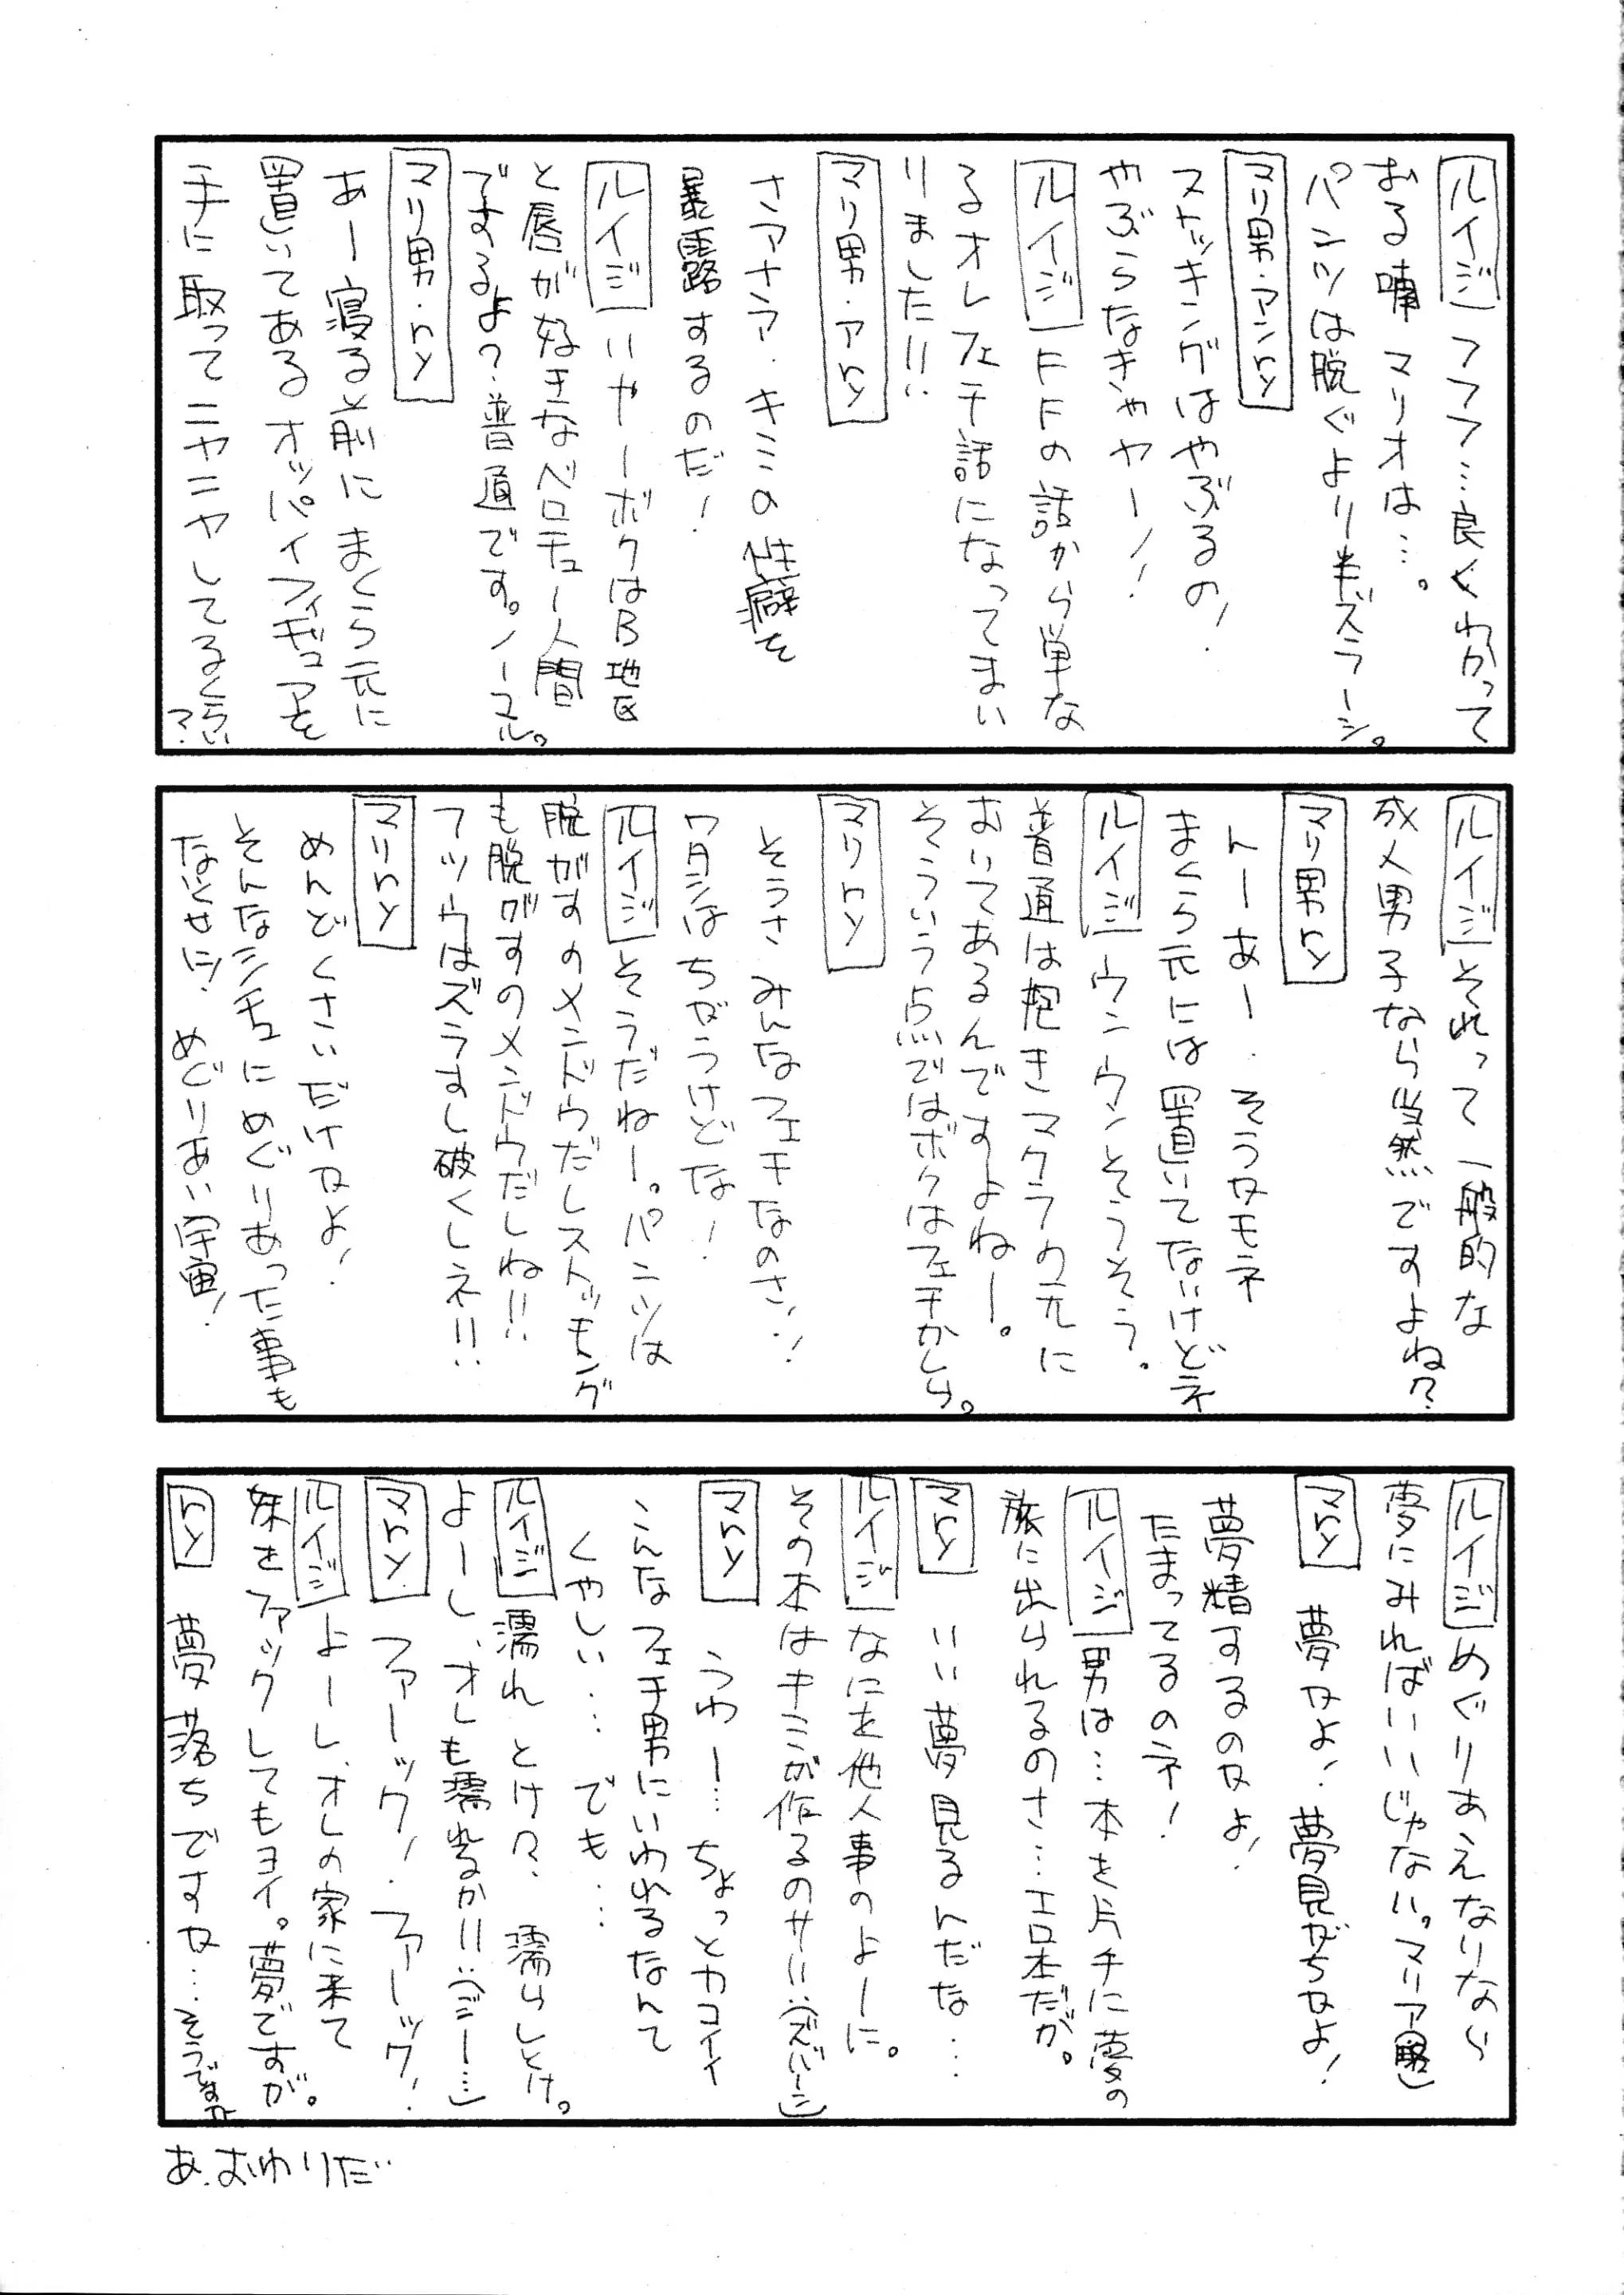 ルイジ フフフ…良くわかって
おる喃 マリオは…。
パンツは脱ぐより半ズラーシ。
マリ男・アンry
ストッキングはやぶるの!
やぶらなきゃヤー!!
ルイジ FFの話から単な
るオレフェチ話になってまい
りました!!
マリ男・アry
さァさァ・キミの性癖を
暴露するのだ!
ルイジ いやーボクはB地区
と唇が好きなベロチュー人間
ですよ?普通です。ノーマル。
マリ男・ry
あー寝る前にまくら元に
置いてあるオッパイフィギュアを
手に取ってニヤニヤしてるくらい
?
ルイジ それって一般的な
成人男子なら当然ですよね?
マリ男ry
んーあー・そうカモネ
まくら元には置いてないけどネ
ルイジ ウンウンそうそう。
普通は抱きマクラの元に
おいてあるんですよねー。
そういう点ではボクはフェチかしら。
マリry
そうさみんなフェチなのさ!
ワタシはちがうけどな!
ルイジ そうだねー。パンツは
脱がすのメンドウだしストッキング
も脱がすのメンドウだしね!!
フツウはズラすし破くしネ!!
マリry
めんどくさいだけカよ!
そんなシチュにめぐりあった事も
なくせに!めぐりあい宇宙!
ルイジ めぐりあえないなら
夢にみればいいじゃない。マリア(略)
マry 夢カよ!夢見がちカよ!
夢精するのカよ!
たまってるのネ!
ルイジ 男は…本を片手に夢の
旅に出られるのさ…エロ本だが。
マry いい夢見るんだな…
ルイジ なにを他人事のよーに。
その本はキミが作るのサ!!(ズバーン)
マry うわー…ちょっとカコイイ
こんなフェチ男にいわれるなんて
くやしい…でも…
ルイジ 濡れとけ々、濡らしとけ。
よーし、オレも濡れるか!!(ジー…)
マry ファーック!ファーック!
ルイジ よーし、オレの家に来て
妹をファックしてもヨイ。夢ですが。
ry 夢落ちですカ…そうですカ
あ、おわりだ